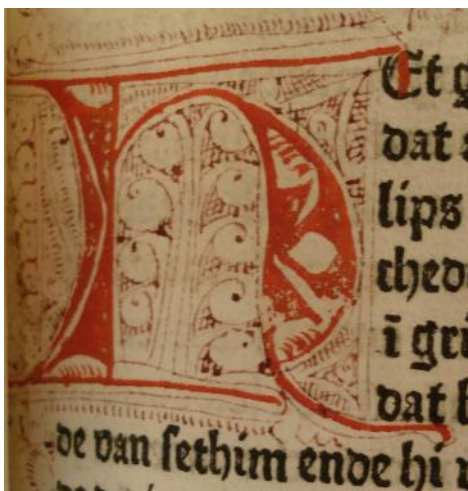 HEt g
dat
lips
ched
ī gri
dat
de van ſethim ende hi